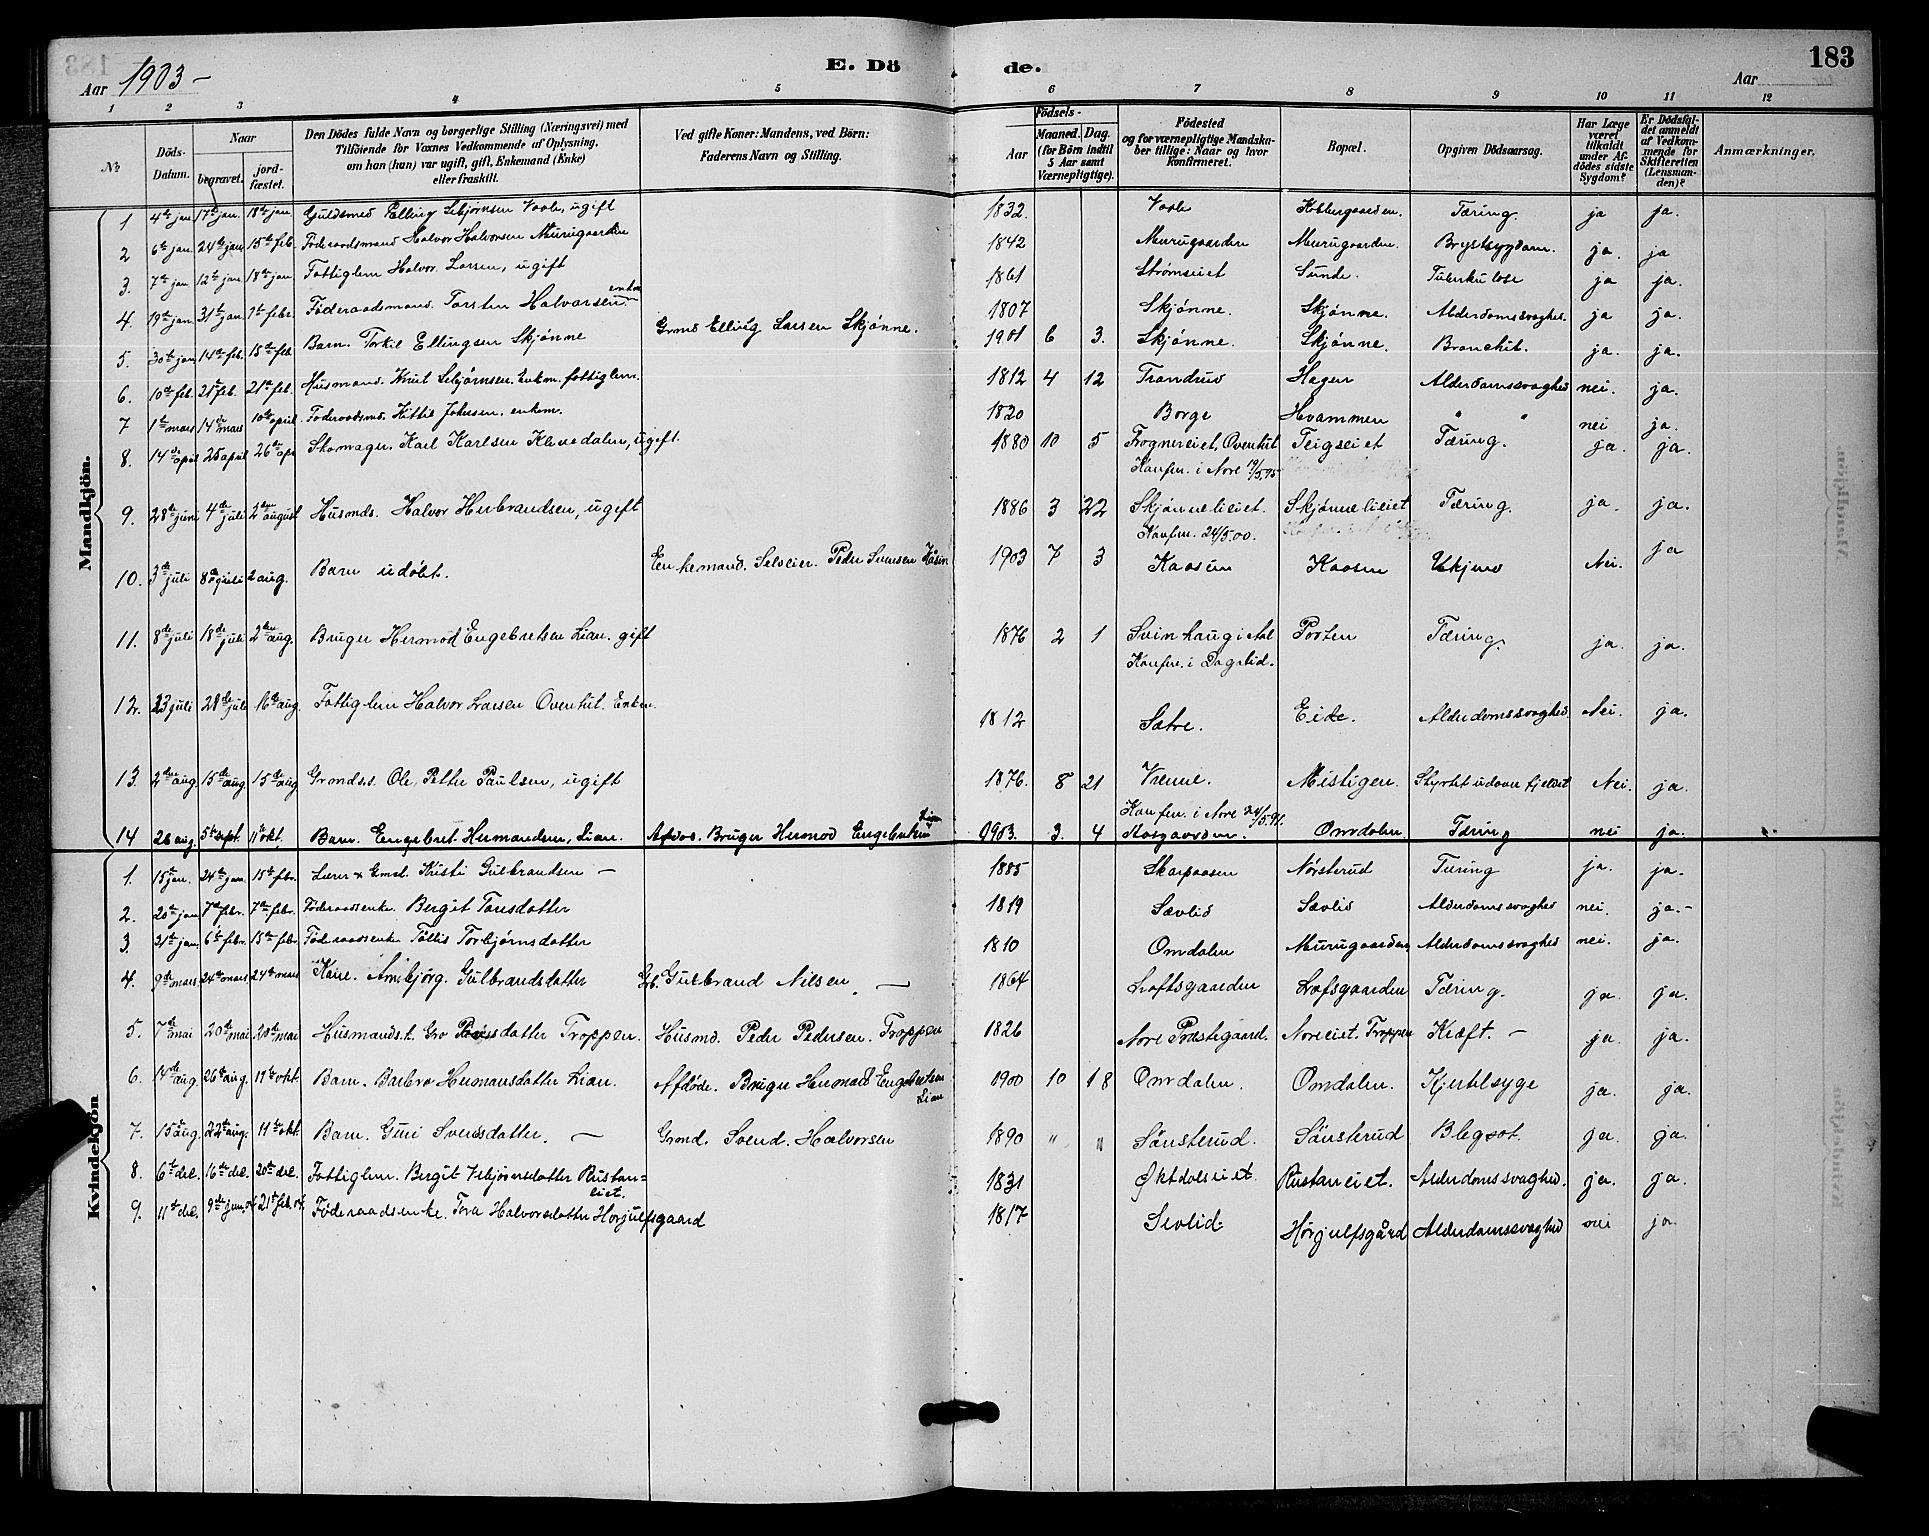 183
Aar 1903 -
E. Dö
de.
Aar
1 2 3 4 5 6 7 8 9 10 11 12
No
Döds-Datum.
Naar
begravet.
jord-fæstet.
Den Dödes fulde Navn og borgerlige Stilling (Næringsvei) med
Tilföiende for Voxnes Vedkommende af Oplysning,
om han (hun) var ugift, gift, Enkemand (Enke)
eller fraskilt.
Ved gifte Koner: Mandens, ved Börn:
Faderens Navn og Stilling.
Födsels-
Aar
Maaned. Dag.
(for Börn indtil
5 Aar samt
Værnepligtige).
Födested
og for værnepligtige Mandska-
ber tillige: Naar og hvor
konfirmeret.
Bopæl.
Opgiven Dödsaarsag.
Har Læge
været
tilkaldt
under Af-
dödes sidste
Sygdom?
Er Dödsfal-
det anmeldt
af Vedkom-
mende for
Skifteretten
(Lensman-
den)?
Anmærkninger.
Mandkjön.
1 4de jan 17de jan. 18de jan Guldsmed Elling Sebjørnsen Vaale, ugift 1832. Vaale Kobbergaarden. Tæring. ja ja.
2 6te jan. 24de jan. 15de feb. Føderaadsmand Halvor Halvorsen Murugaarden 1842 Murugaarden Murugaarden. Brystsygdom. ja. ja
3. 7de jan 12te jan 18de jan Fattiglem Halvor Larsen, ugift 1861 Strømseiet Sunde. Tuberkulose ja ja.
4. 19de jan. 31te jan. 1te febr Føderaadsmand. Torsten Halvorsen. enkem 1807 Skjønne. Skjønne. Alderdomssvaghed. ja ja.
5. 30te jan 14de feb. 15de feb. Barn. Torkil Ellingsen Skjønne Grmd Elling Larsen Skjønne. 1901 6 3. Skjønne. Skjønne. Bronchit. ja. ja.
6. 10de feb. 21de feb. 21de feb. Husmand. Knut Sebjørnsen. Enkm. fattiglem. 1812 4 12 Trandrud Hagen Alderdomssvaghed nei. ja.
7 1te mars 14de mars 10de april. Føderaadsmd. Kittil Johnsen, enkem. 1820 Borge Hvammen " " nei ja.
8. 14de april 25 april 26de apr Skomager. Karl Karlsen Klevedalen, ugift. 1880 10 5 Frognereiet, Oventut Teigseiet Tæring. ja. ja.
Konfm. i Nore 19/5.95
9. 28de juni 4de juli 2den august Husmds. Halvor Herbrandsen, ugift 1886 3 22 Skjønnelieiet. Skjønnelieiet Tæring. ja. ja.
Konfm. 24/5.00.
10. 3de juli 8de juli 2 aug. Barn udøbt. Enkemand. Selveier. Peder Svensen Kåsin 1903 7 3 Kaasen Kaasen Ukjend Nei. ja
11. 8de juli 18de juli 2den aug. Bruger Hermod Engebretsen Lian. gift 1876 2 1 Svinhaug i Aal Porten Tæring. ja. ja.
Konfm. i Dagalid.
12. 23 juli 28de juli 16de aug. Fattiglem Halvor Larsen Oventut. Enkem. 1812 Sætre. Eide. Alderdomssvaghed. Nei. ja.
13. 2den aug 15de aug. 15de aug Grmdss. Ole Petter Paulsen, ugift 1876. 8 21 Vrenne. Mistigen. Styrtet udover fjeldet Nei. ja.
Konfm. i Nore 24/5.91.
14 26 aug. 5te sept. 11 okt. Barn. Engebret Hermandsen, Lian. Afdød. Bruger Hermod Engebretsen Lian 1903. 3. 4 Aasgaarden. Omdalen Tæring nei ja.
Kvindekjön
1. 15de jan. 24de jan. 15de febr. Lærer & Gmd. Kristi Gulbrandsen - 1885 Skarpaasen Nørsterud Tæring ja. ja.
2. 20de jan 7de febr. 7de febr. Føderaadsenke. Bergit Tovsdatter 1819 Sævlid Sævlid Alderdomssvaghed nei. ja.-
3. 31te jan. 6te febr. 15de febr. Føderaadsenke Tollis Torbjørnsdatter 1810 Omdalen Murugaarden Alderdomssvaghed nei. ja.
4. 9de mars 24de mars 24de mars Kone. Ambjørg. Gulbrandsdatter Gb. Gulbrand Nilsen. - 1864 Loftsgaarden Lofsgaarden Tæring. ja. ja.
5. 7de mai 20de mai 20de mai Husmandsk. Gro Pedersdatter Troppen. Husmd. Peder Pedersen. Troppen 1826 Nore Præstegaard. Noreeiet. Troppen Kræft. - ja ja.
6. 14de aug. 26de aug. 11te okt. Barn. Barbro Hermansdatter Lian. Afdøde. Bruger Hermod Engebretsen Lian 1900 10 18 Omdalen. Omdalen. Kjertelsyge ja. ja.
7. 15de aug. 22de aug. 11te okt. Barn. Guri Svendsdatter. - Grmd. Svend. Halvorsen 1890 " " Sønsterud. Sønsterud Blegsot. ja. ja.
8. 6te dec. 16de dec. 20de dec. Fattiglem. Bergit Vebjørnsdatter Rustan=
eiet. 1831 Øktdalseiet Rustaneiet. Alderdomssvaghed. ja. ja.
9. 11te dec. 9de jan. 04 21de feb. 04. Føderaadsenke. Tora Halvorsdatter Horjulfsgaard 1817 Sevlid. Hørjulfsgård Alderdomssvaghed nei ja